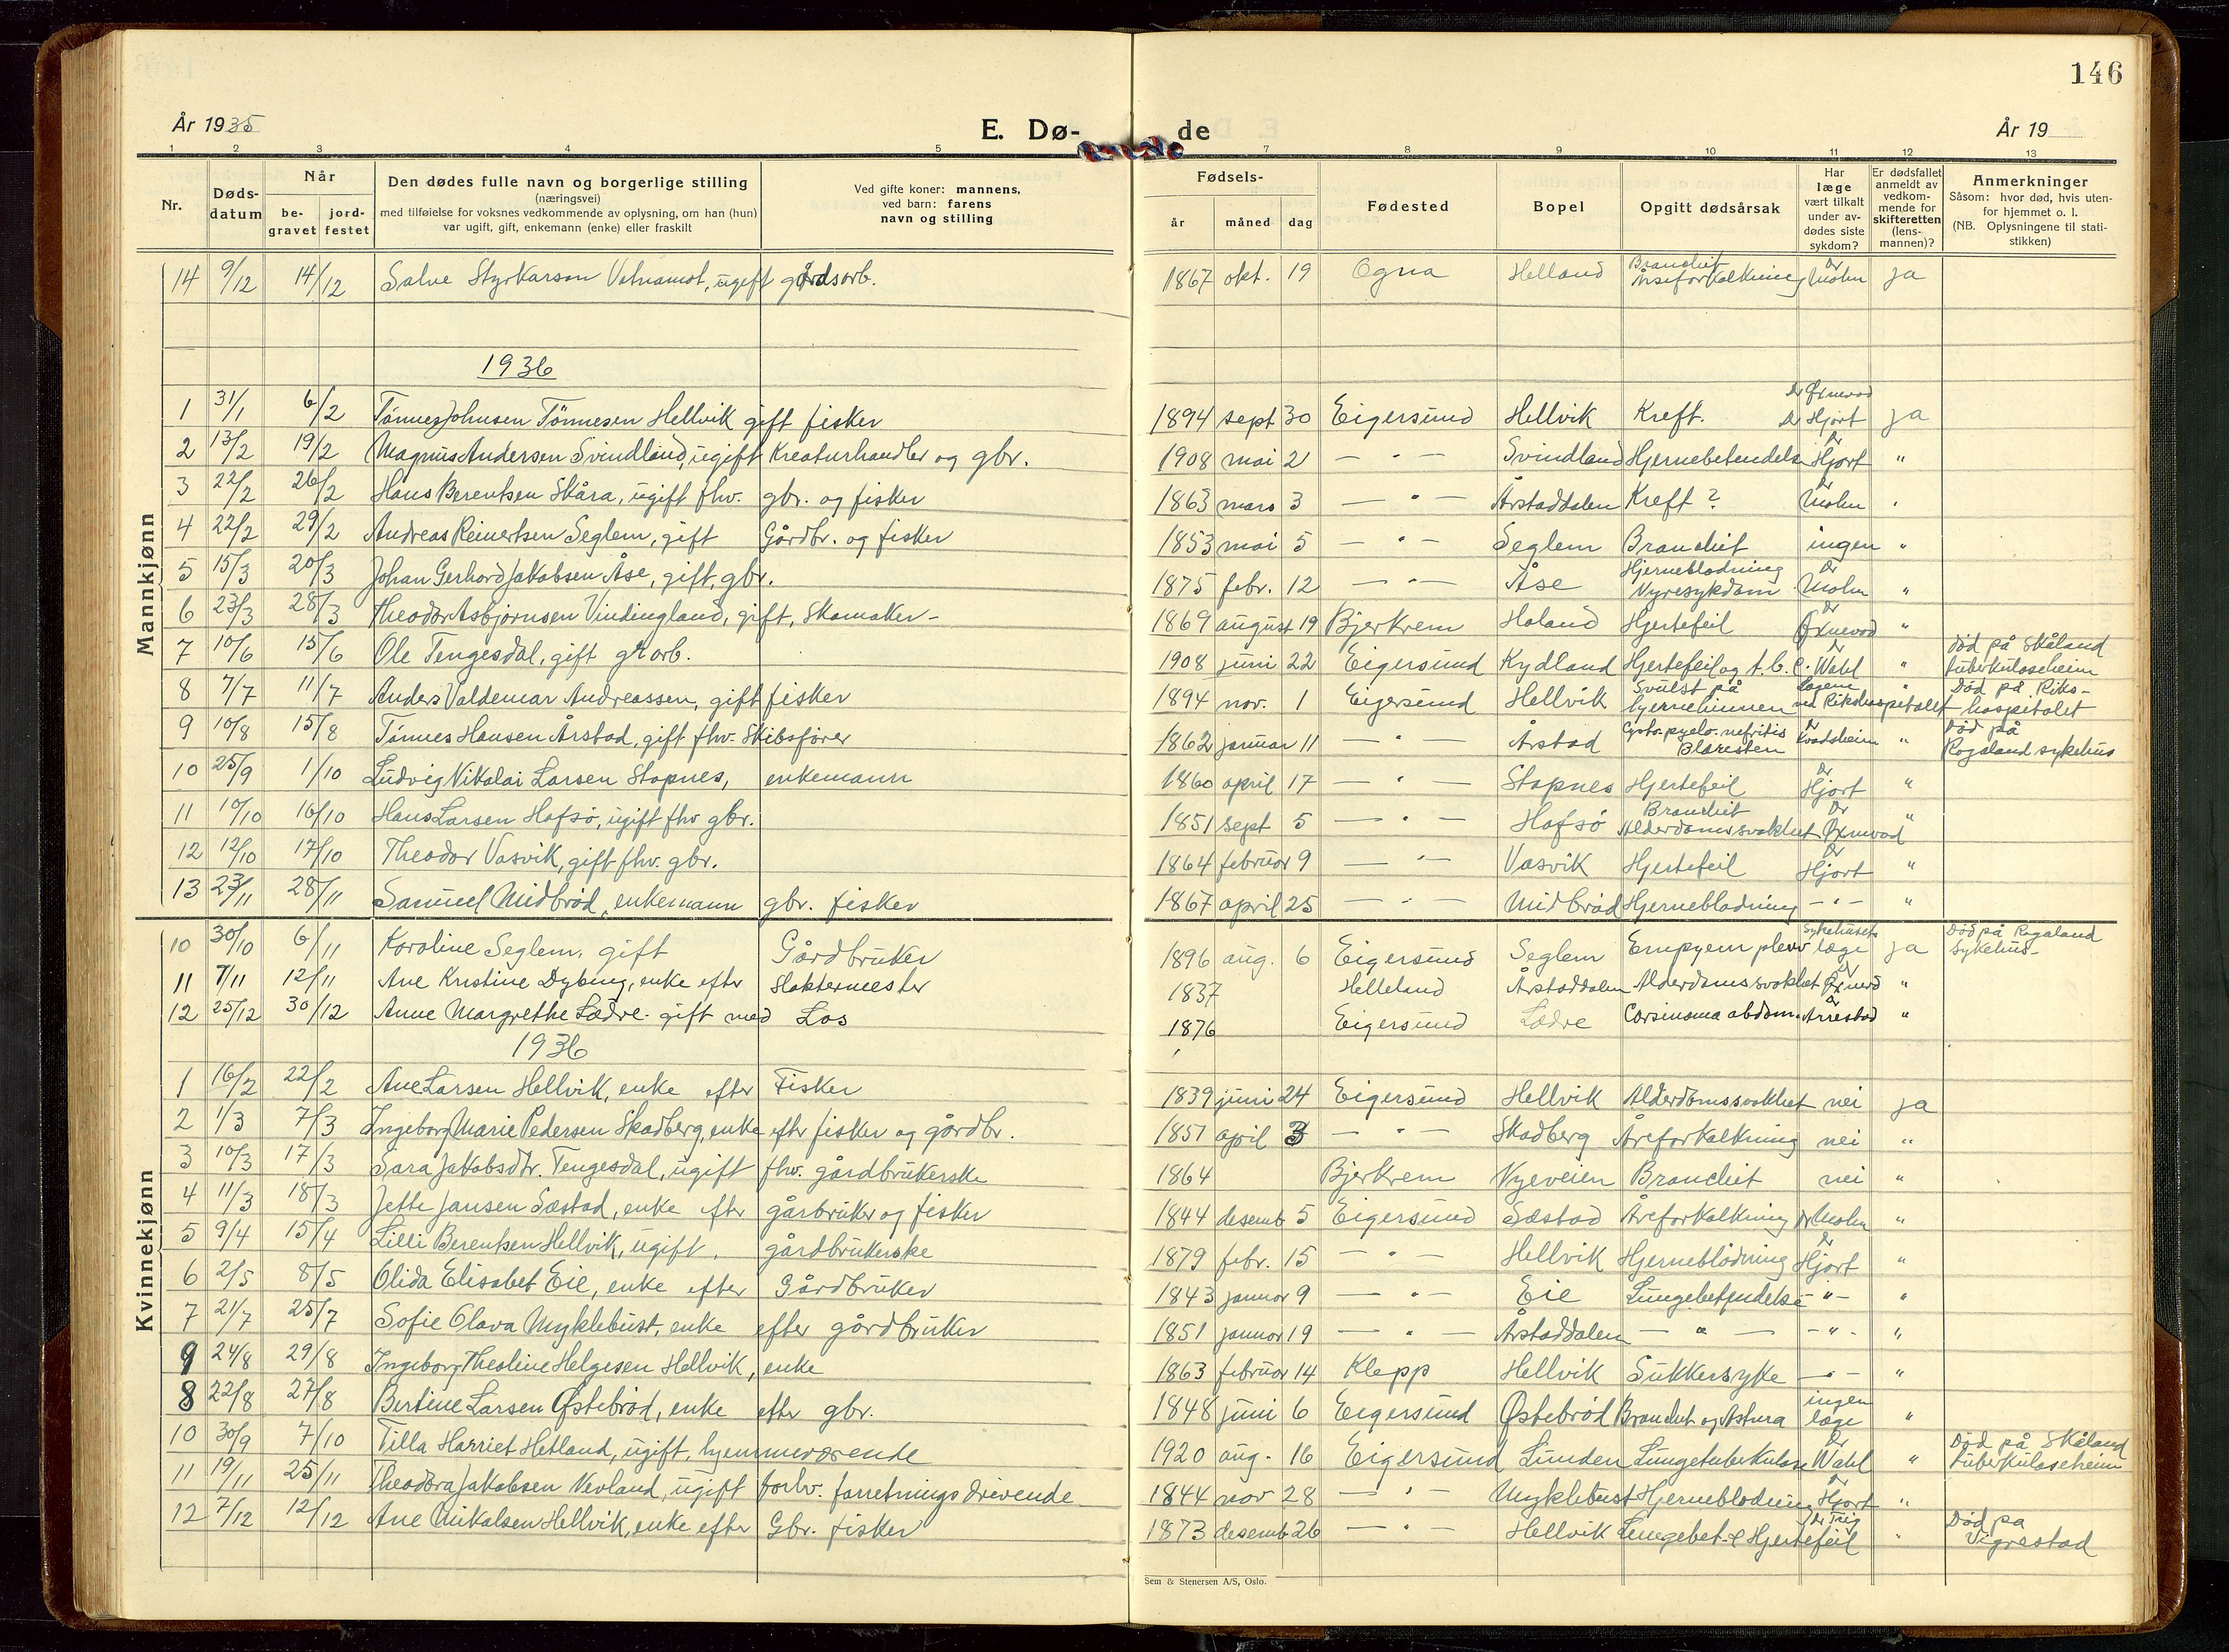 146
År 1935
E. Dø-
de
År 19
1 2 3 4 5 7 8 9 10 11 12 13
Nr.
Døds-
datum
Når
be-
gravet
jord-
festet
Den dødes fulle navn og borgerlige stilling
(næringsvei)
med tilføielse for voksnes vedkommende av oplysning, om han (hun)
var ugift, gift, enkemann (enke) eller fraskilt
Ved gifte koner: mannens,
ved barn: farens
navn og stilling
Fødsels-
år måned dag
Fødested
Bopel
Opgitt dødsårsak
Har
læge
vært tilkalt
under av-
dødes siste
sykdom?
Er dødsfallet
anmeldt av
vedkom-
mende for
skifteretten
(lens-
mannen)?
Anmerkninger
Såsom: hvor død, hvis uten-
for hjemmet o. l.
(NB. Oplysningene til stati-
stikken)
Mannkjønn
14 9/12 14/12 Salve Styrkarson Vatnamot, ugift gårdsarb. 1867 okt. 19 Ogna Helland Bronchit Åreforkalkning Dr Mohn ja
1936
1 31/1 6/2 Tønnes Johnsen Tønnesen Hellvik gift fisker 1894 sept 30 Eigersund Hellvik Kreft. Dr Øxnevad Dr Hjort ja
2 13/2 19/2 Magnus Andersen Svindland, ugift Kreaturhandler og gbr. 1908 mai 2 — " — Svindland Hjernebetendelse Dr Hjort "
3 22/2 26/2 Hans Berentsen Skåra, ugift fhv. gbr. og fisker 1863 mars 3 — " — Årstaddalen Kreft ? Dr Mohn "
4 22/2 29/2 Andreas Reinertsen Seglem, gift Gårdbr. og fisker 1853 mai 5 — " — Seglem Bronchit ingen "
5 15/3 20/3 Johan Gerhard Jakobsen Åse, gift, gbr. 1875 febr. 12 — " — Åse Hjerneblødning Nyresykdom Dr Mohn "
6 23/3 28/3 Theodor Asbjørnsen Vindingland, gift, Skomaker - 1869 august 19 Bjerkrem Holand Hjertefeil Dr Øxnevad "
7 10/6 15/6 Ole Tengesdal, gift arb. 1908 juni 22 Eigersund Kydland Hjertefeil og t.b.c. Dr Wahl " død på Skåland tuberkuloseheim
8 7/7 11/7 Anders Valdemar Andreassen, gift fisker 1894 nov. 1 Eigersund Hellvik Svulst på hjernehinnen Lægene ved Rikshospitalet " Død på Riks- hospitalet
9 10/8 15/8 Tønnes Hansen Årstad, gift fhv. Skibsfører 1862 januar 11 — " — Årstad Cysto-pyelo-nefritis Blæresten Dr Kvadsheim " Død på Rogaland sykehus
10 25/9 1/10 Ludvig Nikolai Larsen Stapnes, enkemann 1860 april 17 — " — Stapnes Hjertefeil Dr Hjort "
11 10/10 16/10 Hans Larsen Hafsø, ugift fhv gbr. 1851 sept 5 — " — Hafsø Bronchit Alderdomssvakhet Dr Øxnevad "
12 12/10 17/10 Theodor Vasvik, gift fhv. gbr. 1864 februar 9 — " — Vasvik Hjertefeil Dr Hjort "
13 23/11 28/11 Samuel Midbrød, enkemann gbr. fisker 1867 april 25 — " — Midbrød Hjerneblødning — " — "
Kvinnekjønn
10 30/10 6/11 Karoline Seglem, gift Gårdbruker 1896 aug. 6 Eigersund Seglem Empyem pleur Sykehusets læge ja Død på Rogaland Sykehus-
11 7/11 12/11 Ane Kristine Dybing, enke efter Slaktermester 1837 Helleland Årstaddalen Alderdomssvakhet Dr Øxnevad "
12 25/12 30/12 Anne Margrethe Lædre - gift med Los 1876 Eigersund Lædre Carsinoma abdom. Dr Årrestad "
1936
1 16/2 22/2 Ane Larsen Hellvik, enke efter Fisker 1839 juni 24 Eigersund Hellvik Alderdomssvakhet nei ja
2 1/3 7/3 Ingeborg Marie Pedersen Skadberg, enke efter fisker og gårdbr. 1851 april 3 — " — Skadberg Åreforkalkning nei "
3 10/3 17/3 Sara Jakobsdtr. Tengesdal, ugift fhv. gårdbrukerske 1864 Bjerkrem Nyeveien Bronchit nei "
4 11/3 18/3 Jette Jansen Sæstad, enke efter gårbruker og fisker 1844 desemb 5 Eigersund Sæstad Åreforkalkning Dr Mohn "
5 9/4 15/4 Lilli Berentsen Hellvik, ugift. gårdbrukerske 1879 febr. 15 — " — Hellvik Hjerneblødning Dr Hjort "
6 2/5 8/5 Olida Elisabet Eie, enke efter Gårdbruker 1843 januar 9 — " — Eie Lungebetendelse — " — "
7 21/7 25/7 Sofie Olava Myklebust, enke efter gårdbruker 1851 januar 19 — " — Årstaddalen — " — — " — "
9 24/8 29/8 Ingeborg Theoline Helgesen Hellvik, enke 1863 februar 14 Klepp Hellvik Sukkersyke — " — "
8 22/8 27/8 Bertine Larsen Østebrød, enke efter gbr. 1848 juni 6 Eigersund Østebrød Bronchit og Astma ingen læge "
10 30/9 7/10 Tilla Harriet Hetland, ugift, hjemmeværende 1920 aug. 16 Eigersund Lunden Lungetuberkulose Dr Wahl " Død på Skåland tuberkuloseheim
11 19/11 25/11 Theodora Jakobsen Nevland, ugift forhv. forretningsdrivende 1844 nov 28 — " — Myklebust Hjerneblødning Dr Hjort "
12 7/12 12/12 Ane Mikalsen Hellvik, enke efter Gbr. fisker 1873 desemb 26 — " — Hellvik Lungebet. & Hjertefeil " Død på Vigrestad
Sem & Stenersen A/S, Oslo.